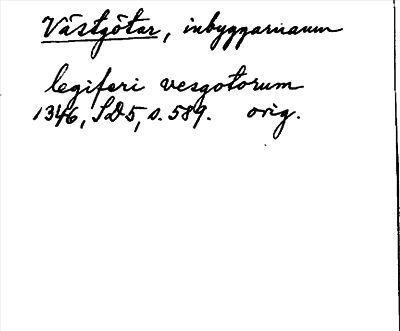 Västgötar, inbyggarnamn
legiferi vesgotorum
1346, SD5, s. 589. orig.